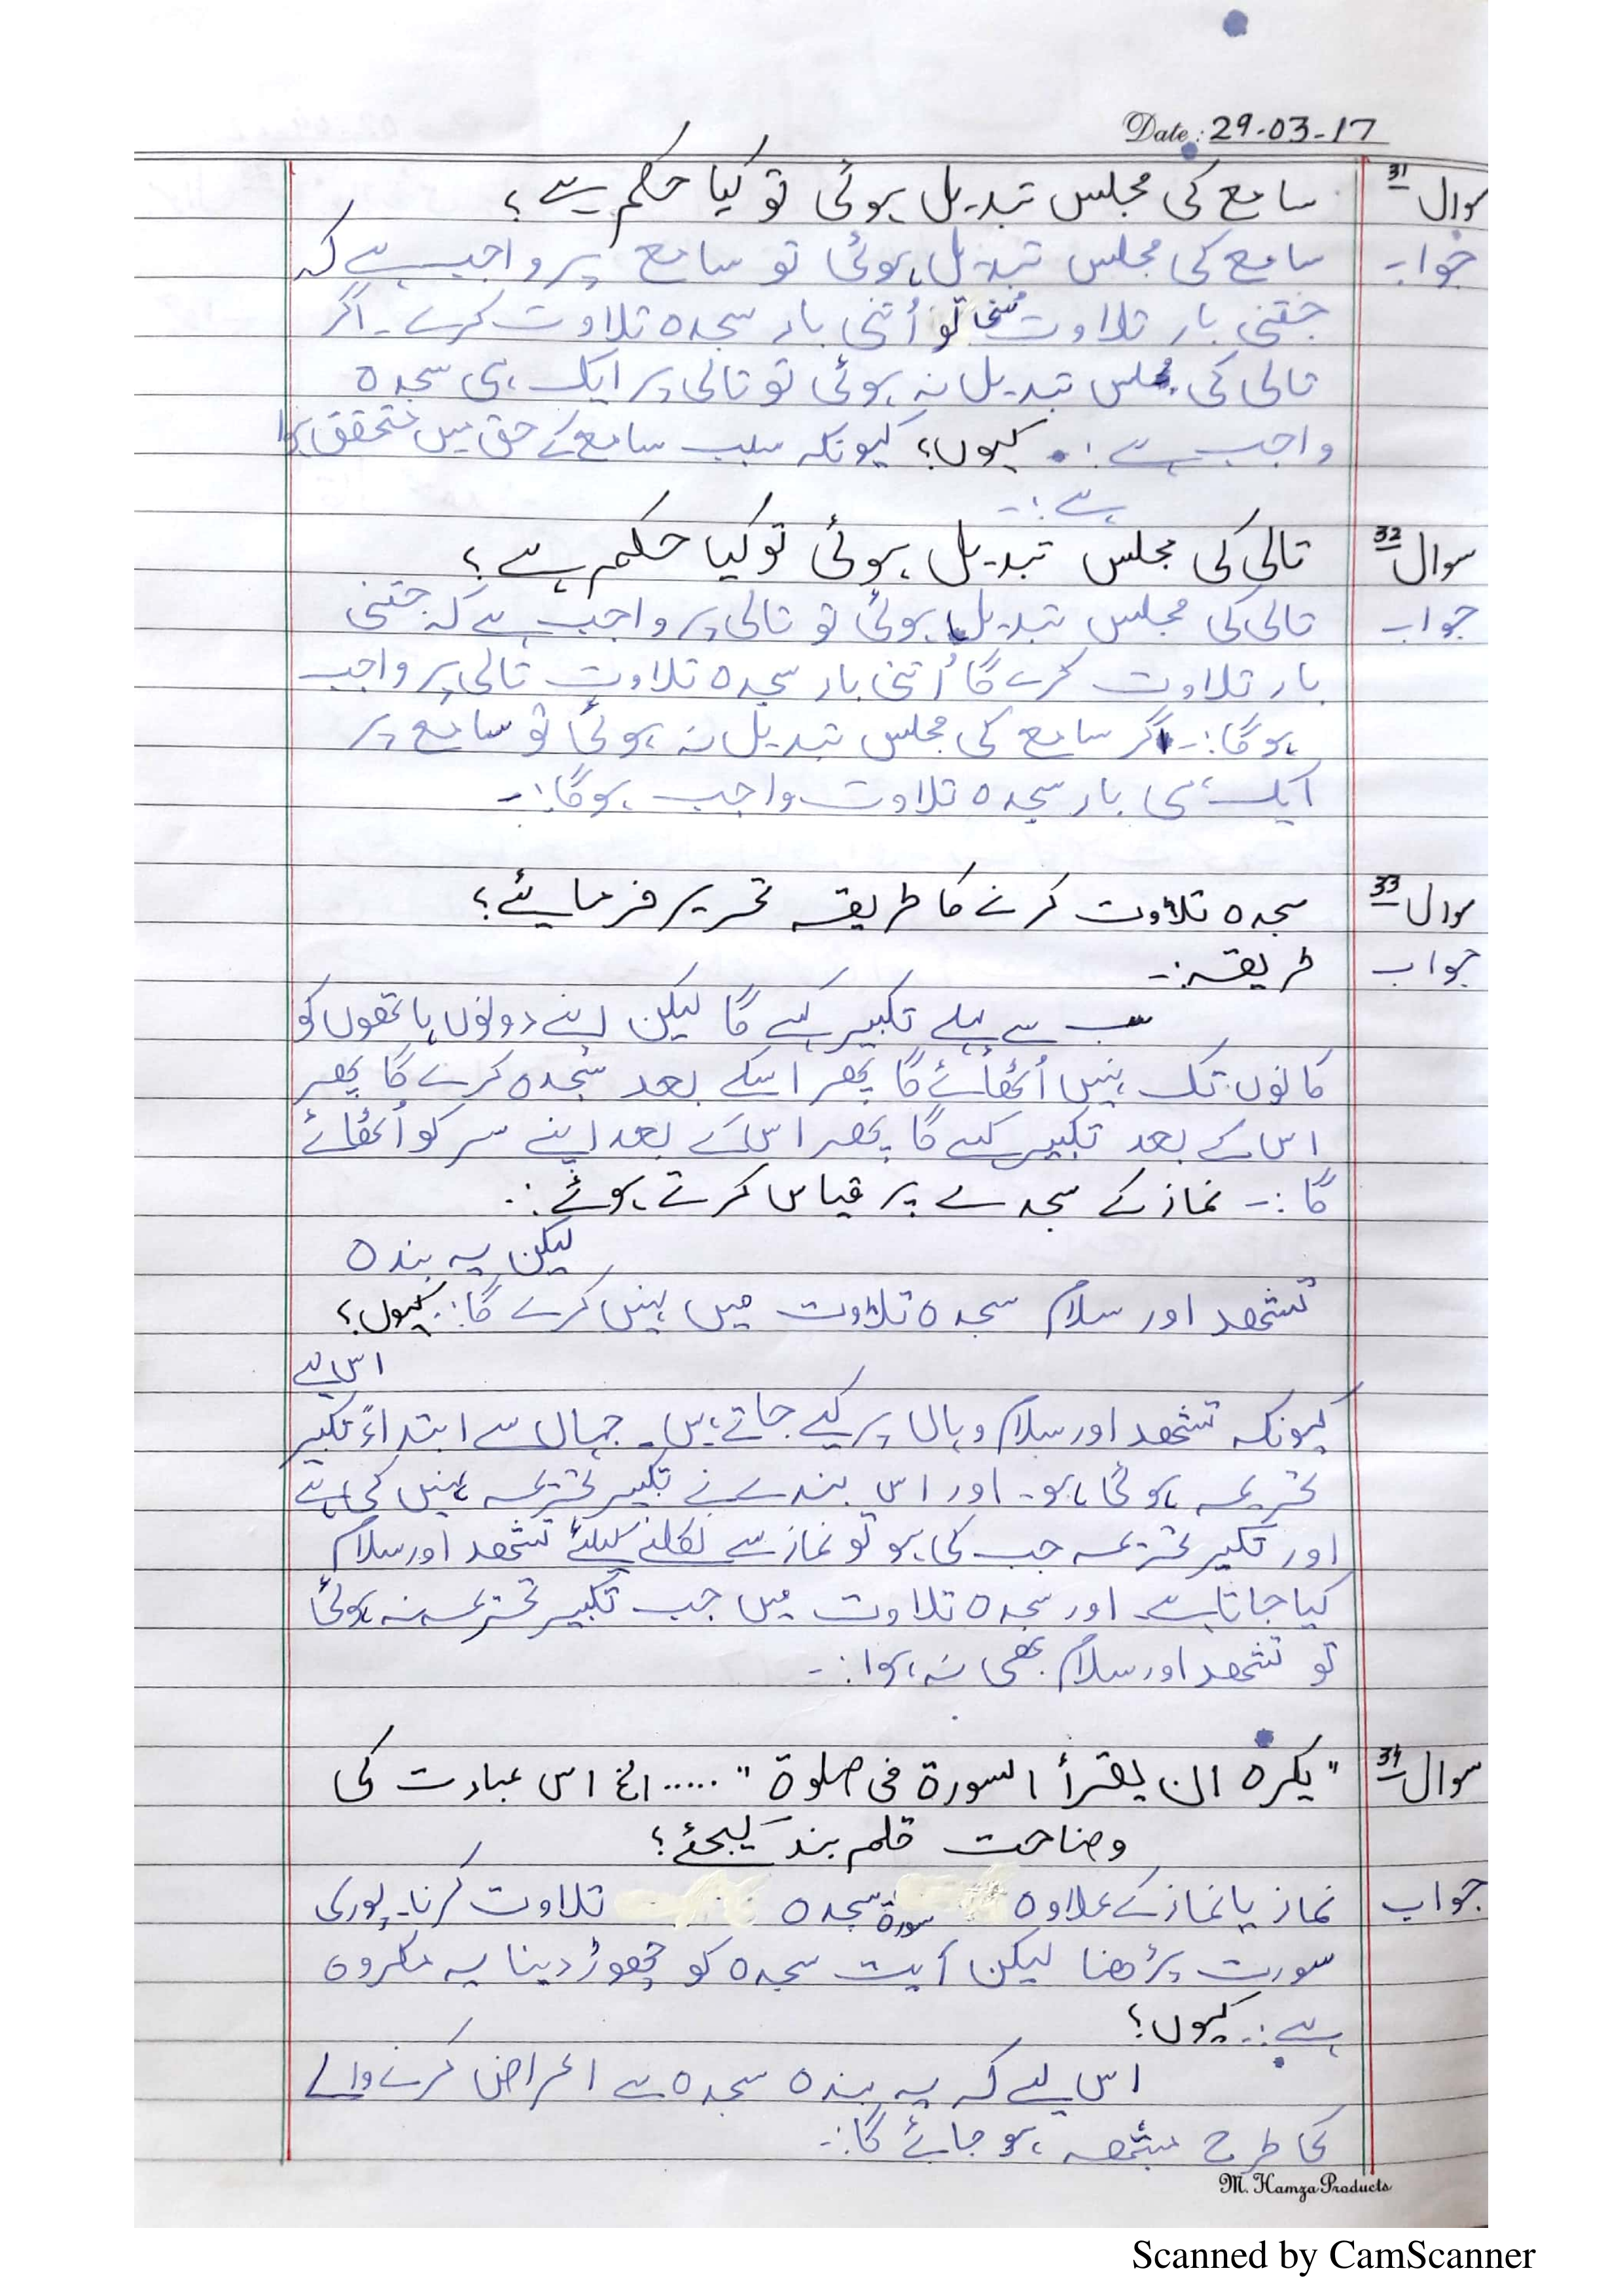 Date: 29-03-17
سوال 31 سامع کی مجلس تبدیل ہوئی تو کیا حکم ہے؟
جواب سامع کی مجلس تبدیل ہوئی تو سامع پر واجب ہے کہ
جتنی بار تلاوت سُنی تو اُتنی بار سجدہ تلاوت کرے۔ اگر
تالی کی مجلس تبدیل نہ ہوئی تو تالی پر ایک ہی سجدہ
واجب ہے :۔ کیوں؟ کیونکہ سبب سامع کے حق میں متحقق ہوا
ہے :۔
سوال 32 تالی کی مجلس تبدیل ہوئی تو کیا حکم ہے؟
جواب تالی کی مجلس تبدیل ہوئی تو تالی پر واجب ہے کہ جتنی
بار تلاوت کرے گا اُتنی بار سجدہ تلاوت تالی پر واجب
ہوگا:۔ اگر سامع کی مجلس تبدیل نہ ہوئی تو سامع پر
ایک ہی بار سجدہ تلاوت واجب ہوگا:۔
سوال 33 سجدہ تلاوت کرنے کا طریقہ تحریر فرمایئے؟
جواب طریقہ:۔
سب سے پہلے تکبیر کہے گا لیکن اپنے دونوں ہاتھوں کو
کانوں تک نہیں اُٹھائے گا پھر اسکے بعد سجدہ کرے گا پھر
اس کے بعد تکبیر کہے گا پھر اس کے بعد اپنے سر کو اُٹھائے
گا :۔ نماز کے سجدے پر قیاس کرتے ہوئے :۔
لیکن یہ بندہ
تشھد اور سلام سجدہ تلاوت میں نہیں کرے گا:۔ کیوں؟
اس لیے
کیونکہ تشھد اور سلام وہاں پر کیے جاتے ہیں۔ جہاں سے ابتداءً تکبیر
تحریمہ ہوئی ہو۔ اور اس بندے نے تکبیر تحریمہ نہیں کی ہے
اور تکبیر تحریمہ جب کی ہو تو نماز سے نکلنے کیلئے تشھد اور سلام
کیا جاتا ہے اور سجدہ تلاوت میں جب تکبیر تحریمہ نہ ہوئی
تو تشھد اور سلام بھی نہ ہوا:۔
سوال 34 "یکرہ ان یقرأ السورة فی صلوة" ..... الخ اس عبادت کی
وضاحت قلم بند کیجئے؟
جواب نماز یا نماز کے علاوہ سورة سجدہ تلاوت کرنا۔ پوری
سورت پڑھنا لیکن آیت سجدہ کو چھوڑ دینا یہ مکروہ
ہے :۔ کیوں؟
اس لیے کہ یہ بندہ سجدہ سے اعراض کرنے والے
کی طرح ہو جائے گا:۔
M. Hamza Products
Scanned by CamScanner